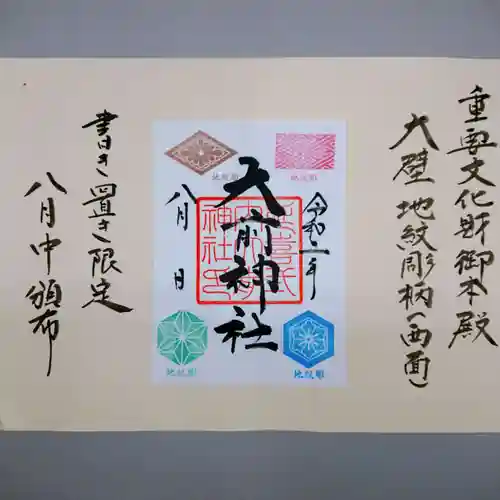 重要文化財御本殿
大壁地紋彫柄(西面)
地紋彫
地紋彫
令和二年
大前神社
八月 日
延喜式
内大前
神社印
地紋彫
地紋彫
書き置き限定
八月中頒布